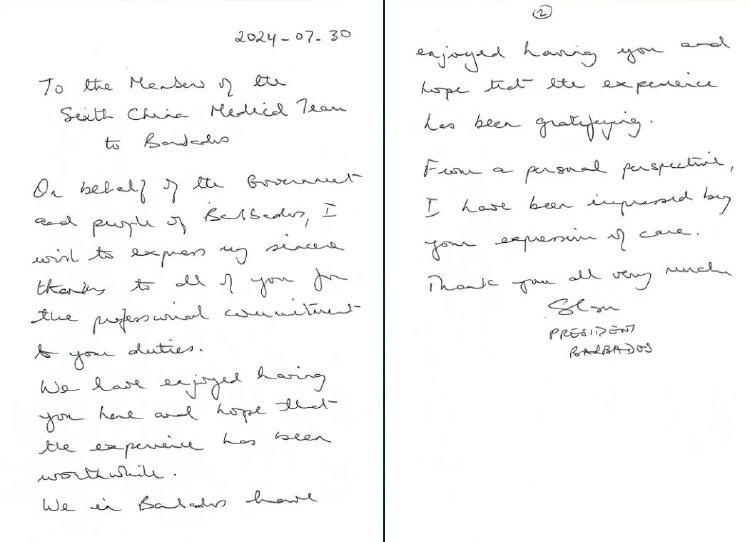 2024-07-30
To the Members of the
Sixth China Medical Team
to Barbados
On behalf of the Government
and people of Barbados, I
wish to express my sincere
thanks to all of you for
the professional commitment
to your duties.
We have enjoyed having
you here and hope that
the experience has been
worthwhile.
We in Barbados have
2
enjoyed having you and
hope that the experience
has been gratifying.
From a personal perspective,
I have been impressed by
your expression of care.
Thank you all very much
PRESIDENT
BARBADOS